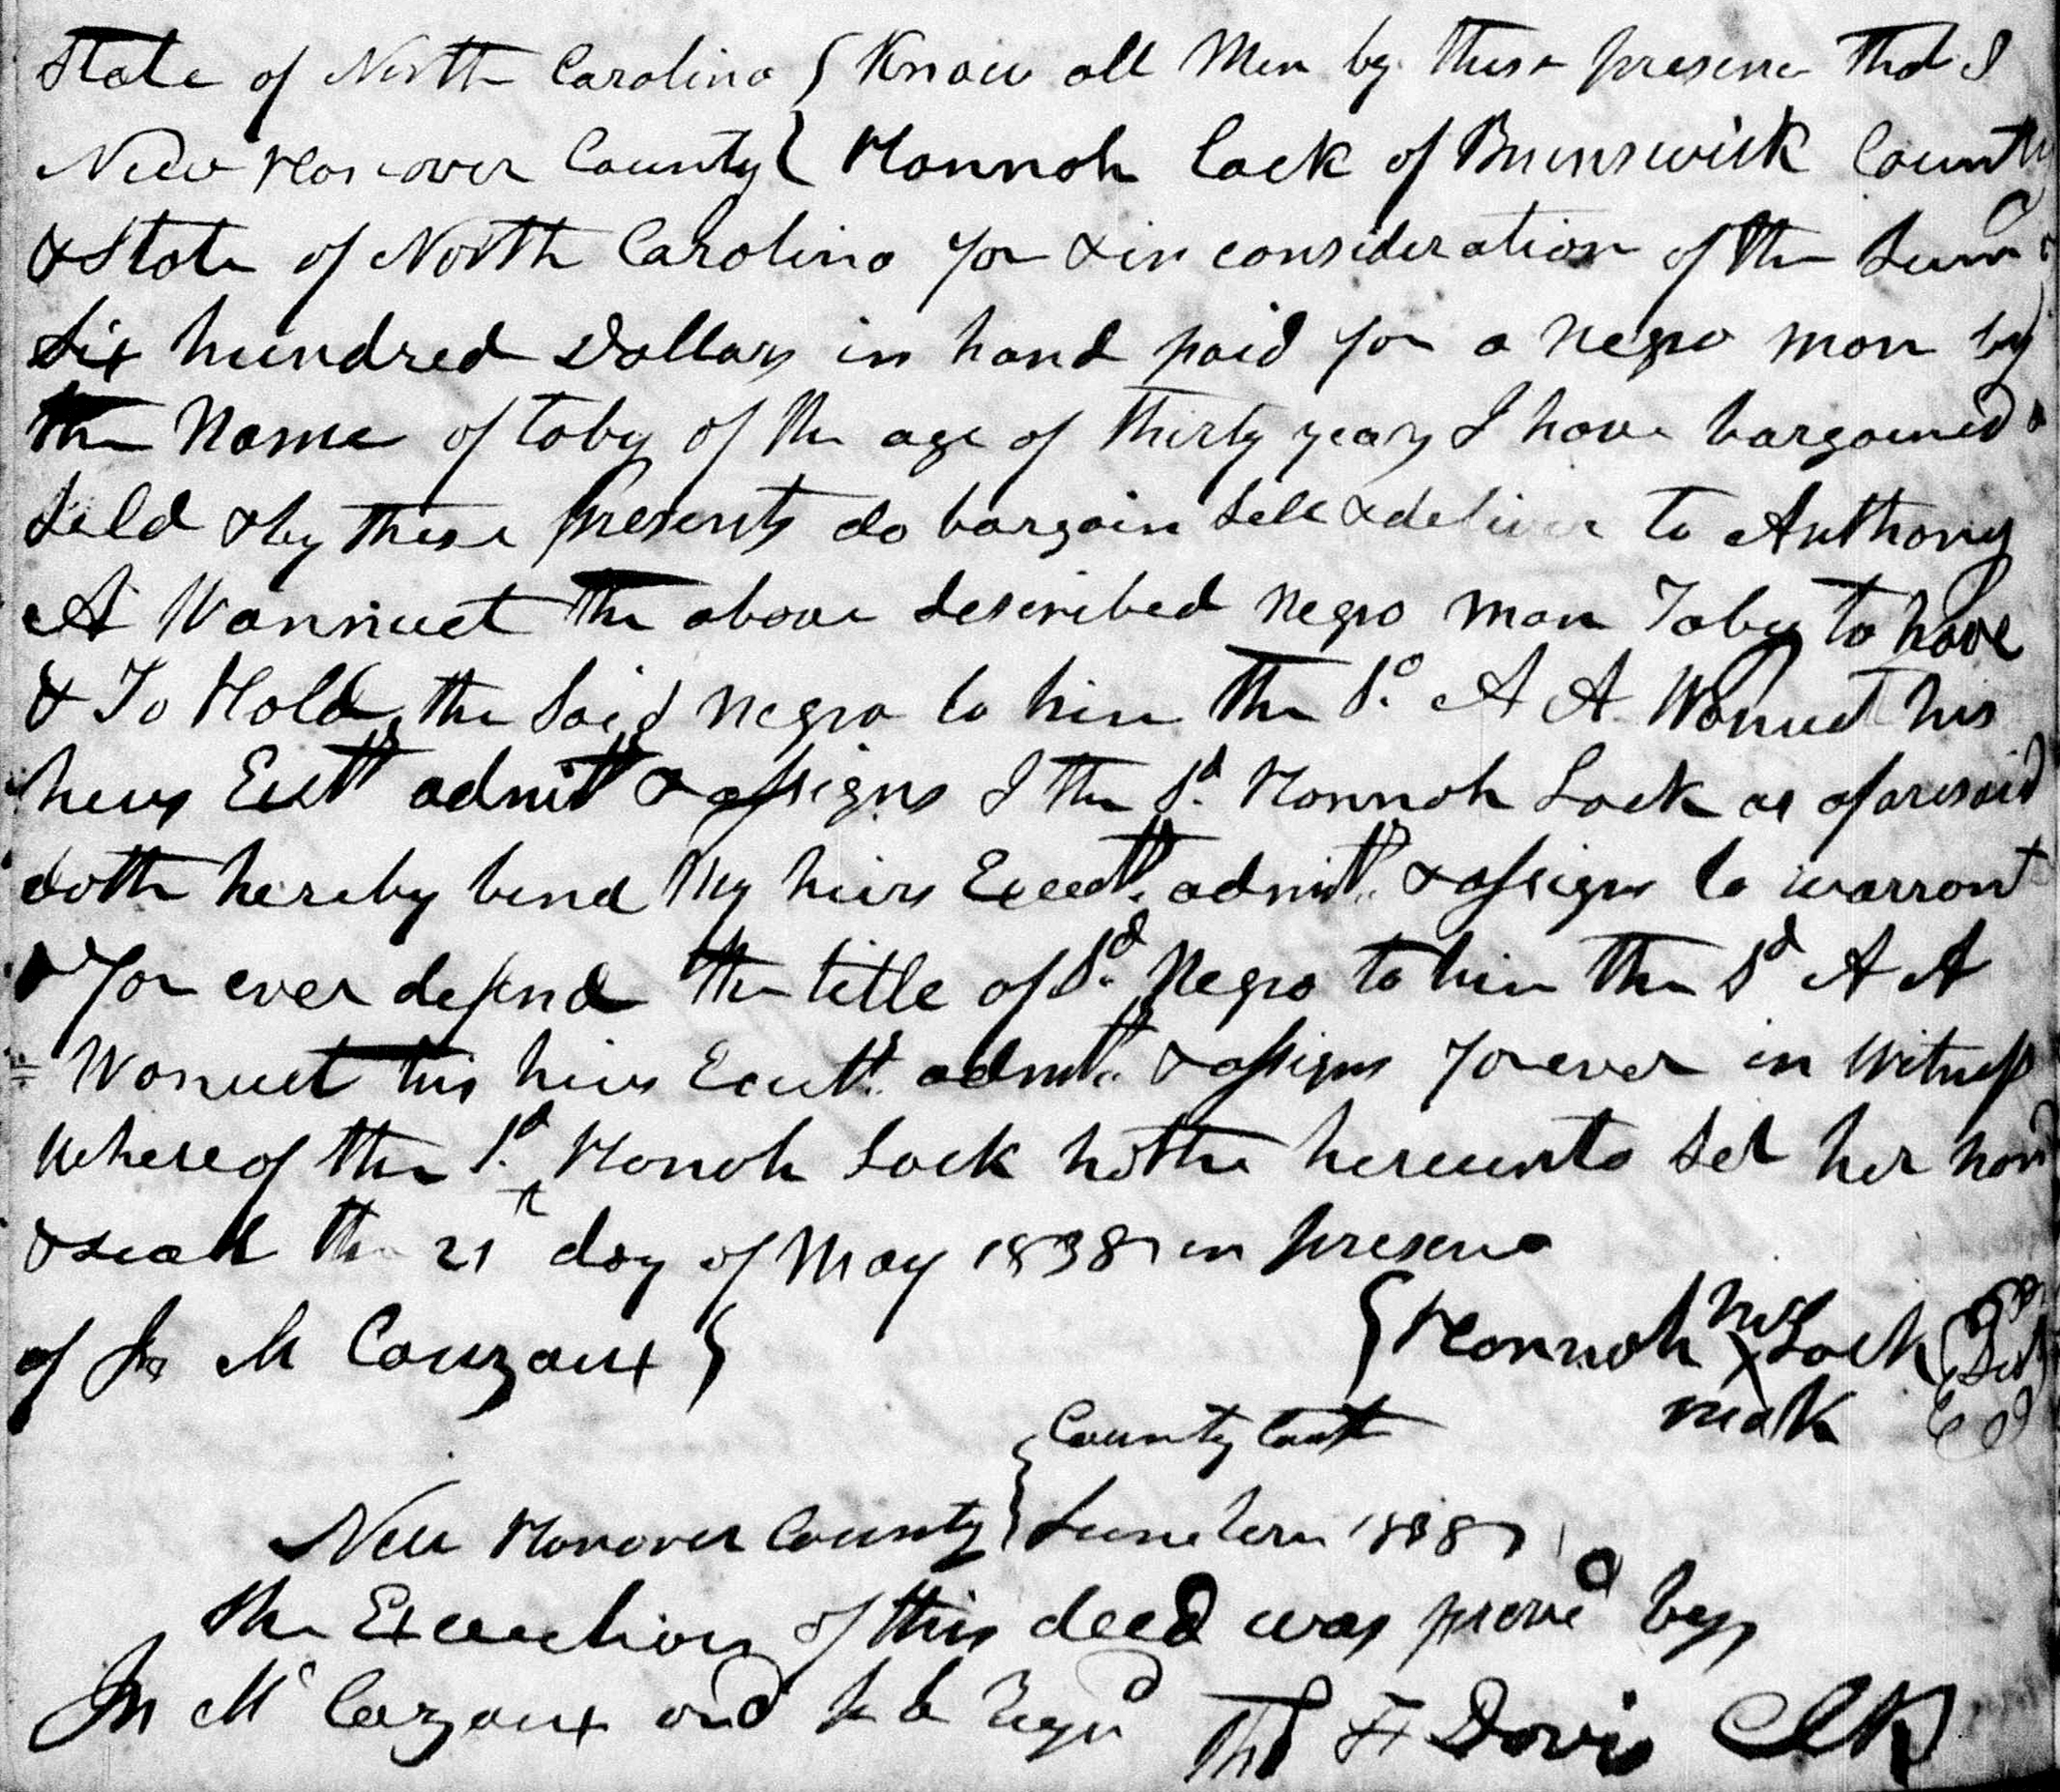 State of North Carolina { Know all Men by these presence that I
New Hanover County { Hannah Lock of Brunswick County
& State of North Carolina for & in consideration of the Sum
Six hundred Dollars in hand paid for a negro man by
the Name of toby of the age of thirty years I have bargained &
Seld & by these presents do bargain Sell & deliver to Anthony
A Wannuet the above described negro man Toby to have
& To Hold the Said negro to him the Sd A A Wanuet his
heirs Exetr admitr & assigns I the Sd Hannah Lock as aforesaid
doth hereby bind My heirs Exeetr admitr & assigns to warrant
& for ever defend the title of Sd Negro to him the Sd A A
Wanuet his heirs Ecutr admtr & assigns forever in Witness
Whereof the Sd Hanah Lock hath hereunto Set her hand
& seal the 21 day of May 1838 in presence
of Jn M Cauzaux } { Hannah her X Lock
mark
County Court
New Hanover County } June term 1838
the Execution of this deed was proved by
Jn Mc Cazaux and Thos F Davis Clk